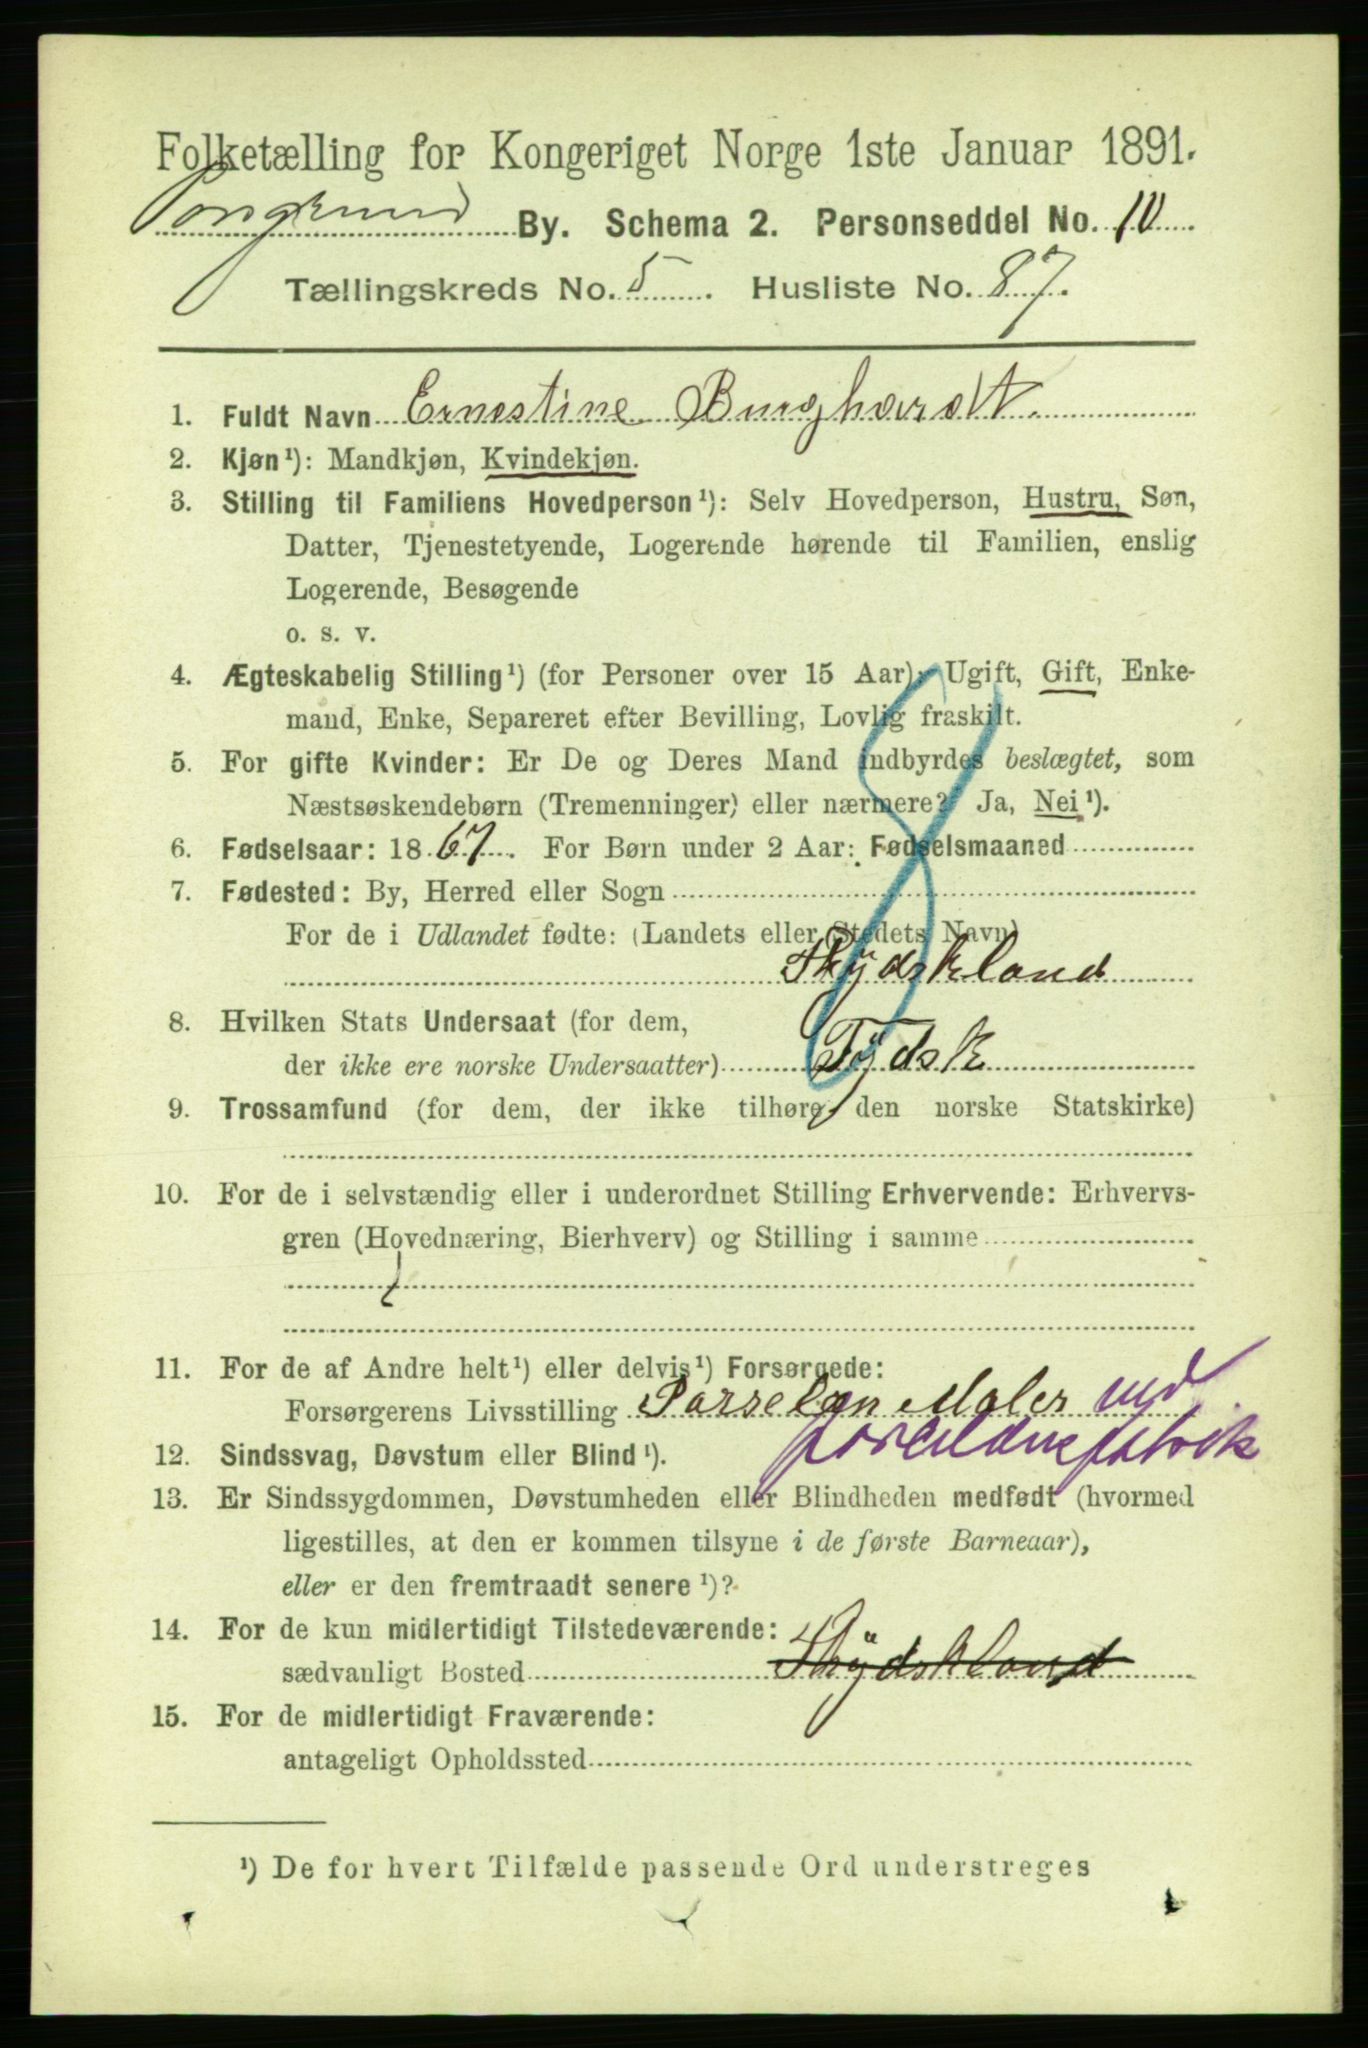 Folketælling for Kongeriget Norge 1ste Januar 1891.
Porsgrund By. Schema 2. Personseddel No. 10
Tællingskreds No. 5. Husliste No. 87.
1. Fuldt Navn Ernestine Burghardt.
2. Kjøn¹): Mandkjøn, Kvindekjøn.
3. Stilling til Familiens Hovedperson¹): Selv Hovedperson, Hustru, Søn,
Datter, Tjenestetyende, Logerende hørende til Familien, enslig
Logerende, Besøgende
o. s. v.
4. Ægteskabelig Stilling¹) (for Personer over 15 Aar): Ugift, Gift, Enke-
mand, Enke, Separeret efter Bevilling, Lovlig fraskilt.
5. For gifte Kvinder: Er De og Deres Mand indbyrdes beslægtet, som
Næstsøskendebørn (Tremenninger) eller nærmere? Ja, Nei¹).
6. Fødselsaar: 1867. For Børn under 2 Aar: Fødselsmaaned
7. Fødested: By, Herred eller Sogn
For de i Udlandet fødte: (Landets eller Stedets Navn)
Thydskland
8. Hvilken Stats Undersaat (for dem,
der ikke ere norske Undersaatter) Tÿdsk
9. Trossamfund (for dem, der ikke tilhøre den norske Statskirke)
10. For de i selvstændig eller i underordnet Stilling Erhvervende: Erhvervs-
gren (Hovednæring, Bierhverv) og Stilling i samme
11. For de af Andre helt¹) eller delvis¹) Forsørgede:
Forsørgerens Livsstilling Porselæn Maler ved
porcelænsfabrik
12. Sindssvag, Døvstum eller Blind¹).
13. Er Sindssygdommen, Døvstumheden eller Blindheden medfødt (hvormed
ligestilles, at den er kommen tilsyne i de første Barneaar),
eller er den fremtraadt senere¹)?
14. For de kun midlertidigt Tilstedeværende:
sædvanligt Bosted Thÿdskland
15. For de midlertidigt Fraværende:
antageligt Opholdssted
¹) De for hvert Tilfælde passende Ord understreges